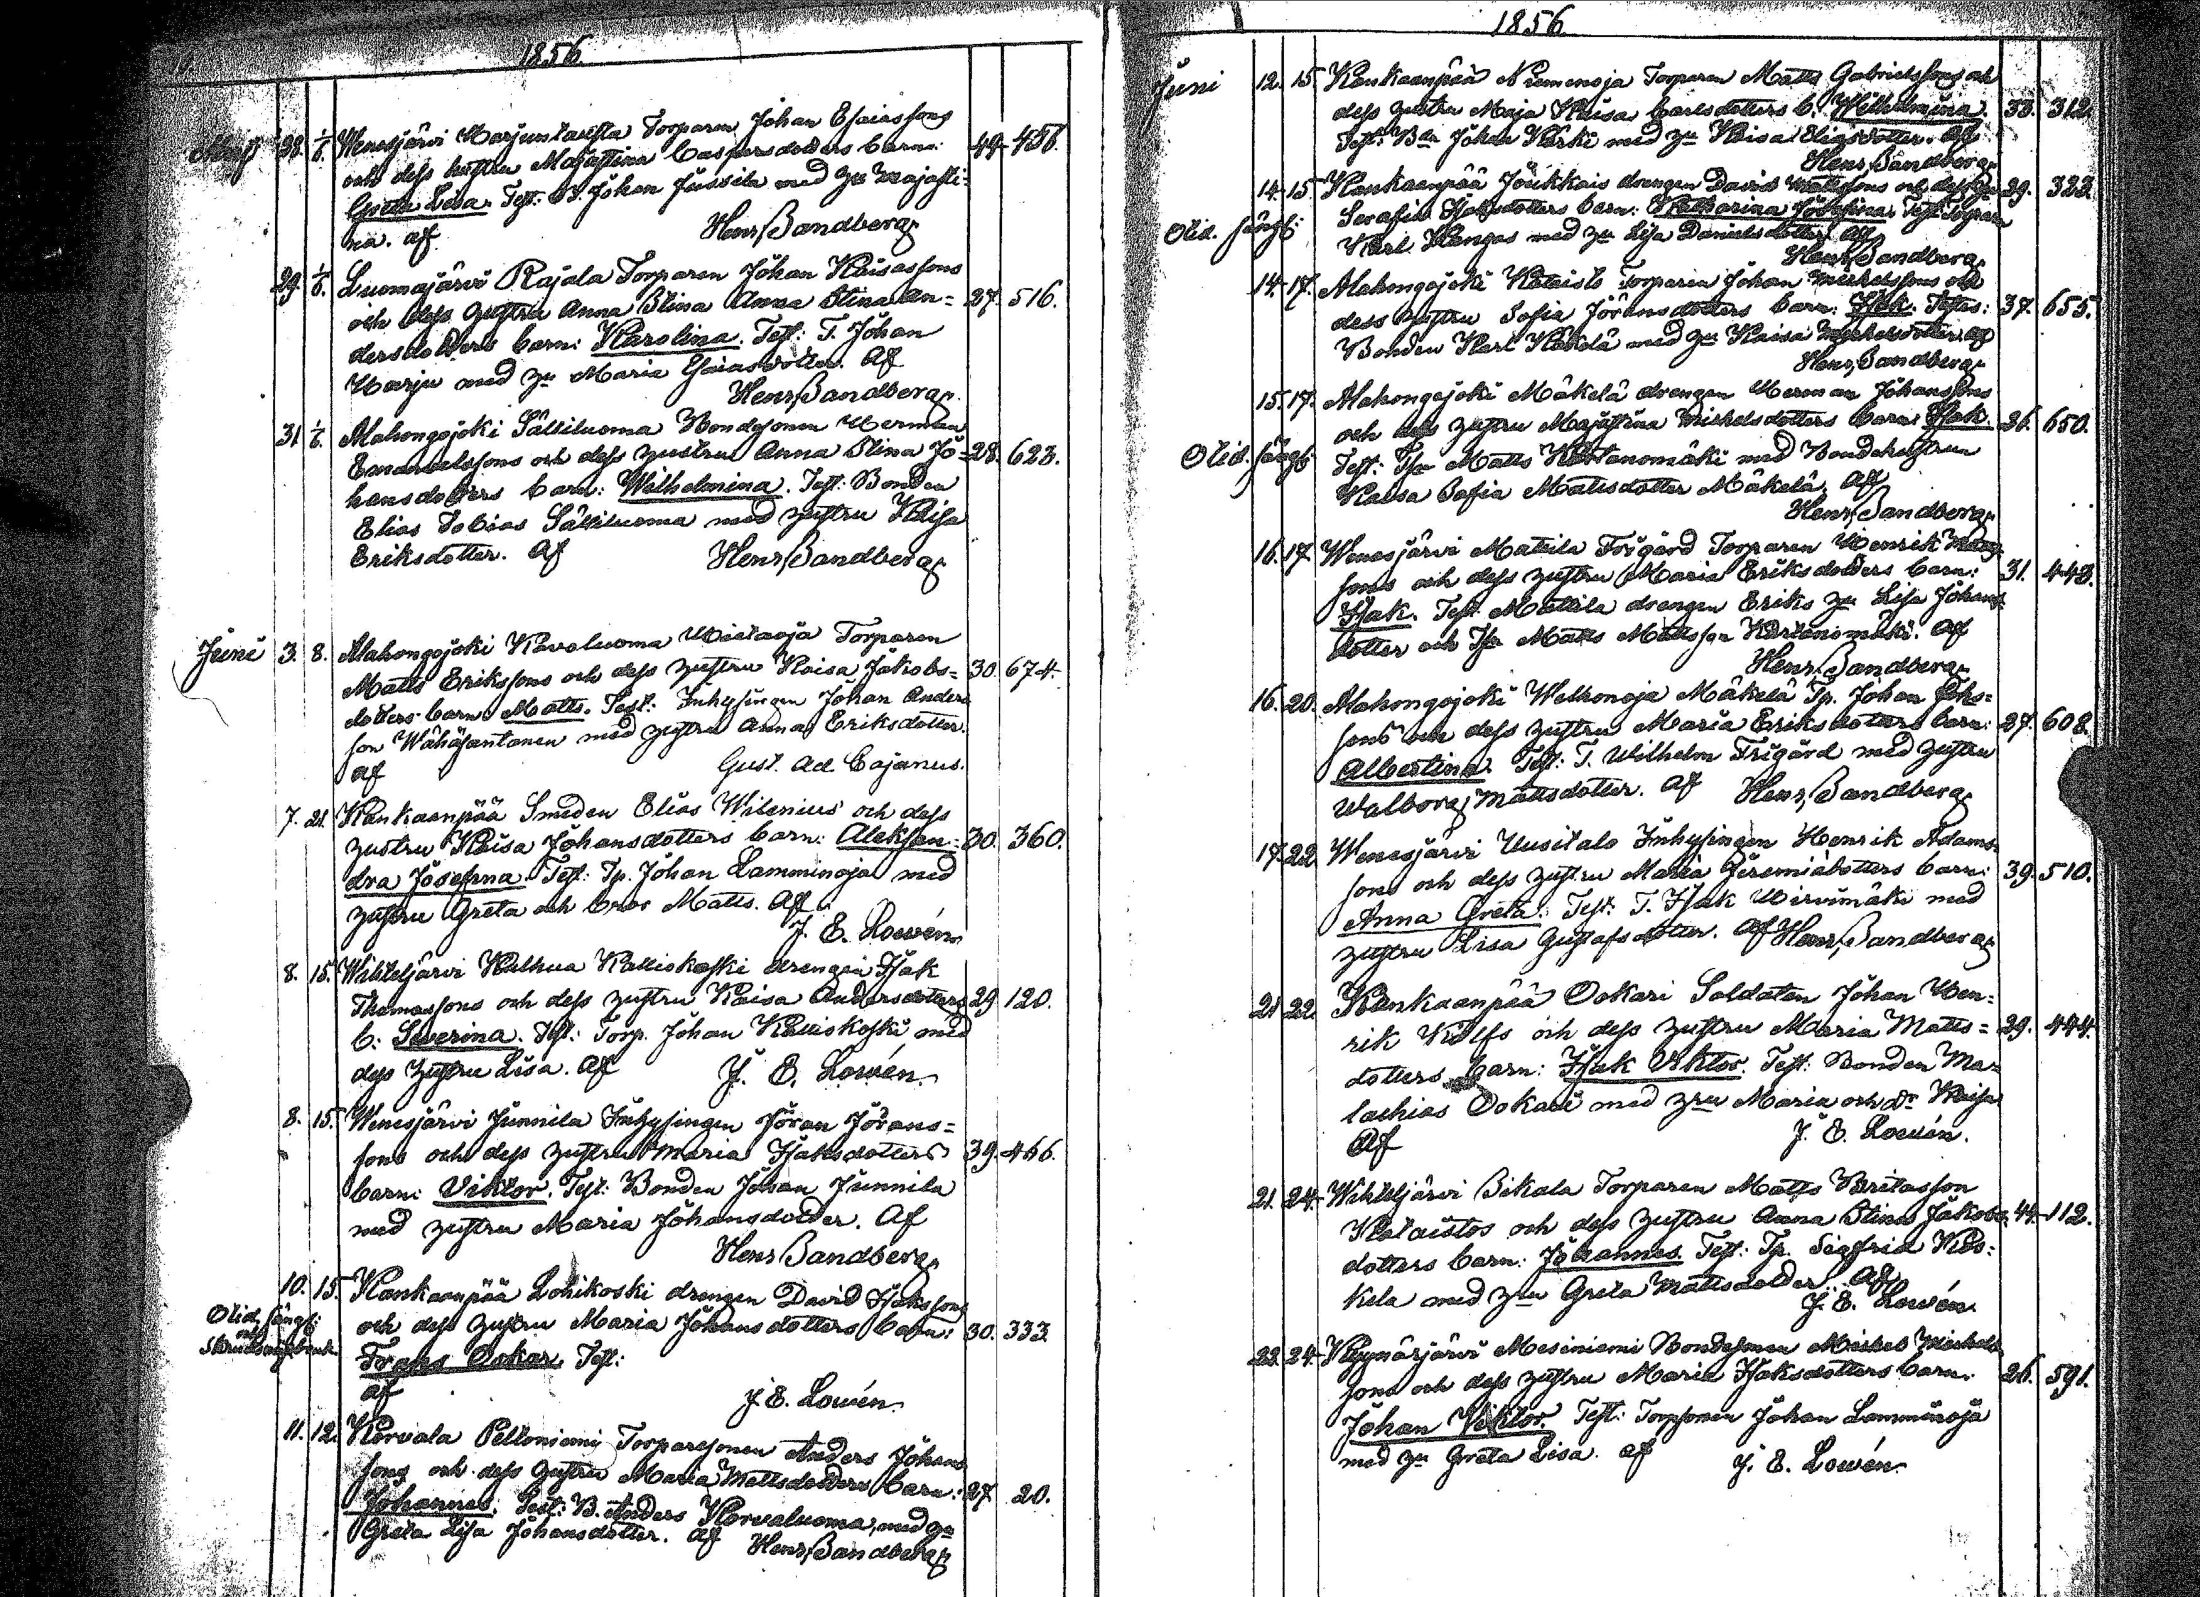 1856
Maji 28. 1/6. Wenesjärvi Harjunlaifta Torparen Johan Esaiassons
och dess hustru Majastina Caspersdotters barn: 49. 456.
Greta Lisa. Test: B. Johan Jussila med hu Majasti-
na. af Henr. Sandberg.
29. 1/6. Luomajärvi Rajala Torparen Johan Kaisassons
och dess hustru Anna Stina Anna Stina An= 27. 516.
dersdotters barn: Karolina. Test: T. Johan
Harju med hu Maria Esaiasdotter. Af
Henr. Sandberg.
31. 1/6. Alahongojoki Sälliluoma Bondesonen Herman
Emanuelssons och dess hustru Anna Stina Jo= 28. 623.
hansdotters barn: Wilhelmina. Test: Bonden
Elias Tobias Sälliluoma med hustru Kaisa
Eriksdotter. Af Henr. Sandberg.
Juni 3. 8. Alahongojoki Kavoluoma Hietaoja Torparen
Matts Erikssons och dess hustru Kaisa Jakobs= 30. 674.
dotters barn: Matts. Test: Inhysingen Johan Anders
son Wähäsantanen med hustru Anna Eriksdotter.
af Gust. Ad. Cajanus.
7. 21. Kankaanpää Smeden Elias Wilenius och dess
hustru Kaisa Johansdotters barn: Aleksan= 30. 360.
dra Josefina. Test: Tp. Johan Lamminoja med
hustru Greta och bror Matts. Af
J. E. Lowén.
8. 15. Wihteljärvi Kulhua Kalliokoski drengen Isak
Thomassons och dess hustru Kaisa Andersdotters 29. 120.
b: Severina. Test: Torp. Johan Kalliokoski med
dess hustru Lisa. Af J. E. Lowén.
8. 15. Wenesjärvi Junnila Inhysingen Jöran Jörans=
sons och dess hustru Maria Isaksdotters 39. 466.
barn: Viktor. Test: Bonden Johan Junnila
med hustru Maria Johansdotter. Af
Henr. Sandberg.
10. 15. Kankaanpää Lohikoski drengen David Isakssons
Olid. sängl:
och dess hustru Maria Johansdotters barn: 30. 333.
Frans Oskar. Test:
af
J. E. Lowén.
11. 12. Korvala Peltoniemi Torparesonen Anders Johans
sons och dess hustru Maria Mattsdotters barn: 27. 20.
Johannes. Test: B. Anders Korvaluoma med hu
Greta Lisa Johansdotter. Af Henr. Sandberg
1856
Juni 12. 15. Kankaanpää Niemenoja Torparen Matts Gabrielssons och
dess hustru Maja Kaisa Carlsdotters b. Wilhelmina. 33. 312.
Test: Bdn Johan Koski med hu Kaisa Eliasdotter. Af
Henr. Sandberg.
14. 15. Kankaanpää Jörikkais drengen David Mattssons och dess hu 29. 322.
Olid. sängl: Serafia Isaksdotters barn: Katharina Josefina. Test: Torparen
Karl Kangas med hu Lisa Danielsdotter. Af
Henr. Sandberg.
14. 17. Alahongojoki Kataisto Torparen Johan Mickelssons och
dess hustru Sofia Jöransdotters barn: Isak. Testes: 37. 655.
Bonden Karl Kokola med hu Kaisa Mickelsdotter. af
Henr. Sandberg.
15. 17. Alahongojoki Mäkelä drengen Herman Johanssons
och dess hustru Majastina Mickelsdotters barn: Isak. 26. 650.
Olid. sängl: Test: Matts Kortanomäki med Bondehustrun
Kaisa Sofia Mattsdotter Mäkelä. Af
Henr. Sandberg.
16. 17. Wenesjärvi Mattila Frigård Torparen Henrik Matts
sons och dess hustru Maria Eriksdotters barn: 31. 443.
Isak. Test: Mattila drengen Eriks hu Lisa Johans
dotter och Matts Mattsson Kortanomäki. Af
Henr. Sandberg.
16. 20. Alahongojoki Welhonoja Mäkelä Tp. Johan Joh:
sons och dess hustru Maria Eriksdotters barn: 27. 608.
Albertina. Test: T. Wilhelm Frigård med hustru
Walborg Mattsdotter. Af Henr. Sandberg.
17. 22. Wenesjärvi Uusitalo Inhysingen Henrik Adams-
sons och dess hustru Maria Jeremiädotters barn: 39. 510.
Anna Greta. Test: T. Isak Hirvimäki med
hustru Lisa Gustafsdotter. Af Henr. Sandberg
21. 22. Kankaanpää Ookari Soldaten Johan Hen=
rik Kolfs och dess hustru Maria Matts= 29. 444.
dotters barn: Isak Viktor. Test: Bonden Ma-
lachias Ookari med hru Maria och Dr Kaisa
Af J. E. Lowén.
21. 24. Wihteljärvi Sikala Torparen Matts Britasson
Kataistos och dess hustru Anna Stina Jakobs 44. 112.
dotters barn: Johannes. Test: Tp. Sigfrid Kos=
kela med hu Greta Mattsdotter. Af
J. E. Lowén.
22. 24. Kyynärjärvi Mesiniemi Bondesonen Mickel Mickels
sons och dess hustru Maria Isaksdotters barn: 26. 591.
Johan Viktor. Test: Torpsonen Johan Lamminoja
med hu Greta Lisa. af J. E. Lowén.